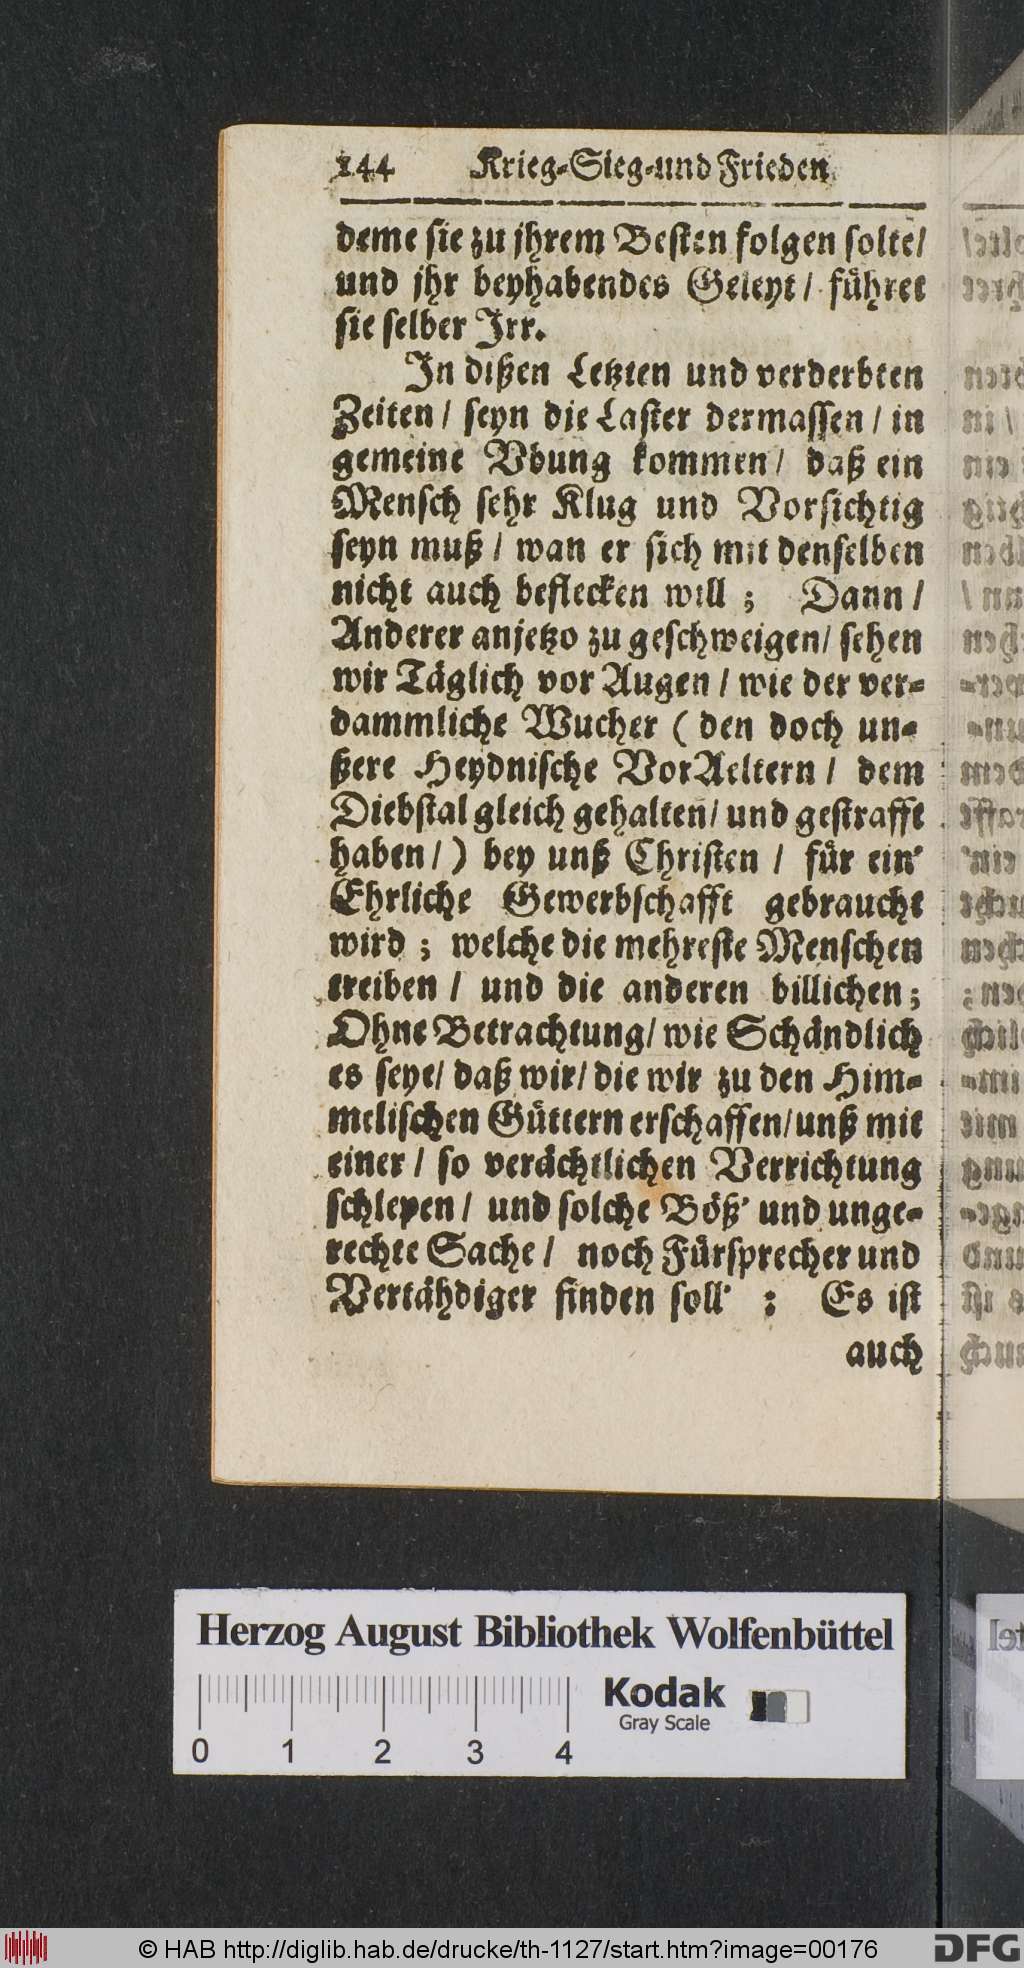 144 Krieg-Sieg-und Frieden
deme sie zu jhrem Besten folgen solte/
und jhr beyhabendes Geleyt / führet
sie selber Irr.
In dißen Letzten und verderbten
Zeiten / seyn die Laster dermassen / in
gemeine Vbung kommen / daß ein
Mensch sehr Klug und Vorsichtig
seyn muß / wan er sich mit denselben
nicht auch beflecken will ; Dann /
Anderer anjetzo zu geschweigen / sehen
wir Täglich vor Augen / wie der ver-
dammliche Wucher ( den doch un-
ßere Heydnische VorAeltern / dem
Diebstal gleich gehalten / und gestrafft
haben / ) bey unß Christen / für ein'
Ehrliche Gewerbschafft gebraucht
wird ; welche die mehreste Menschen
treiben / und die anderen billichen ;
Ohne Betrachtung / wie Schändlich
es seye / daß wir / die wir zu den Him-
melischen Güttern erschaffen / unß mit
einer / so verächtlichen Verrichtung
schlepen / und solche Böß' und unge-
rechte Sache / noch Fürsprecher und
Vertähdiger finden soll' : Es ist
auch
Herzog August Bibliothek Wolfenbüttel
Kodak
Gray Scale
0 1 2 3 4
© HAB http://diglib.hab.de/drucke/th-1127/start.htm?image=00176
DFG